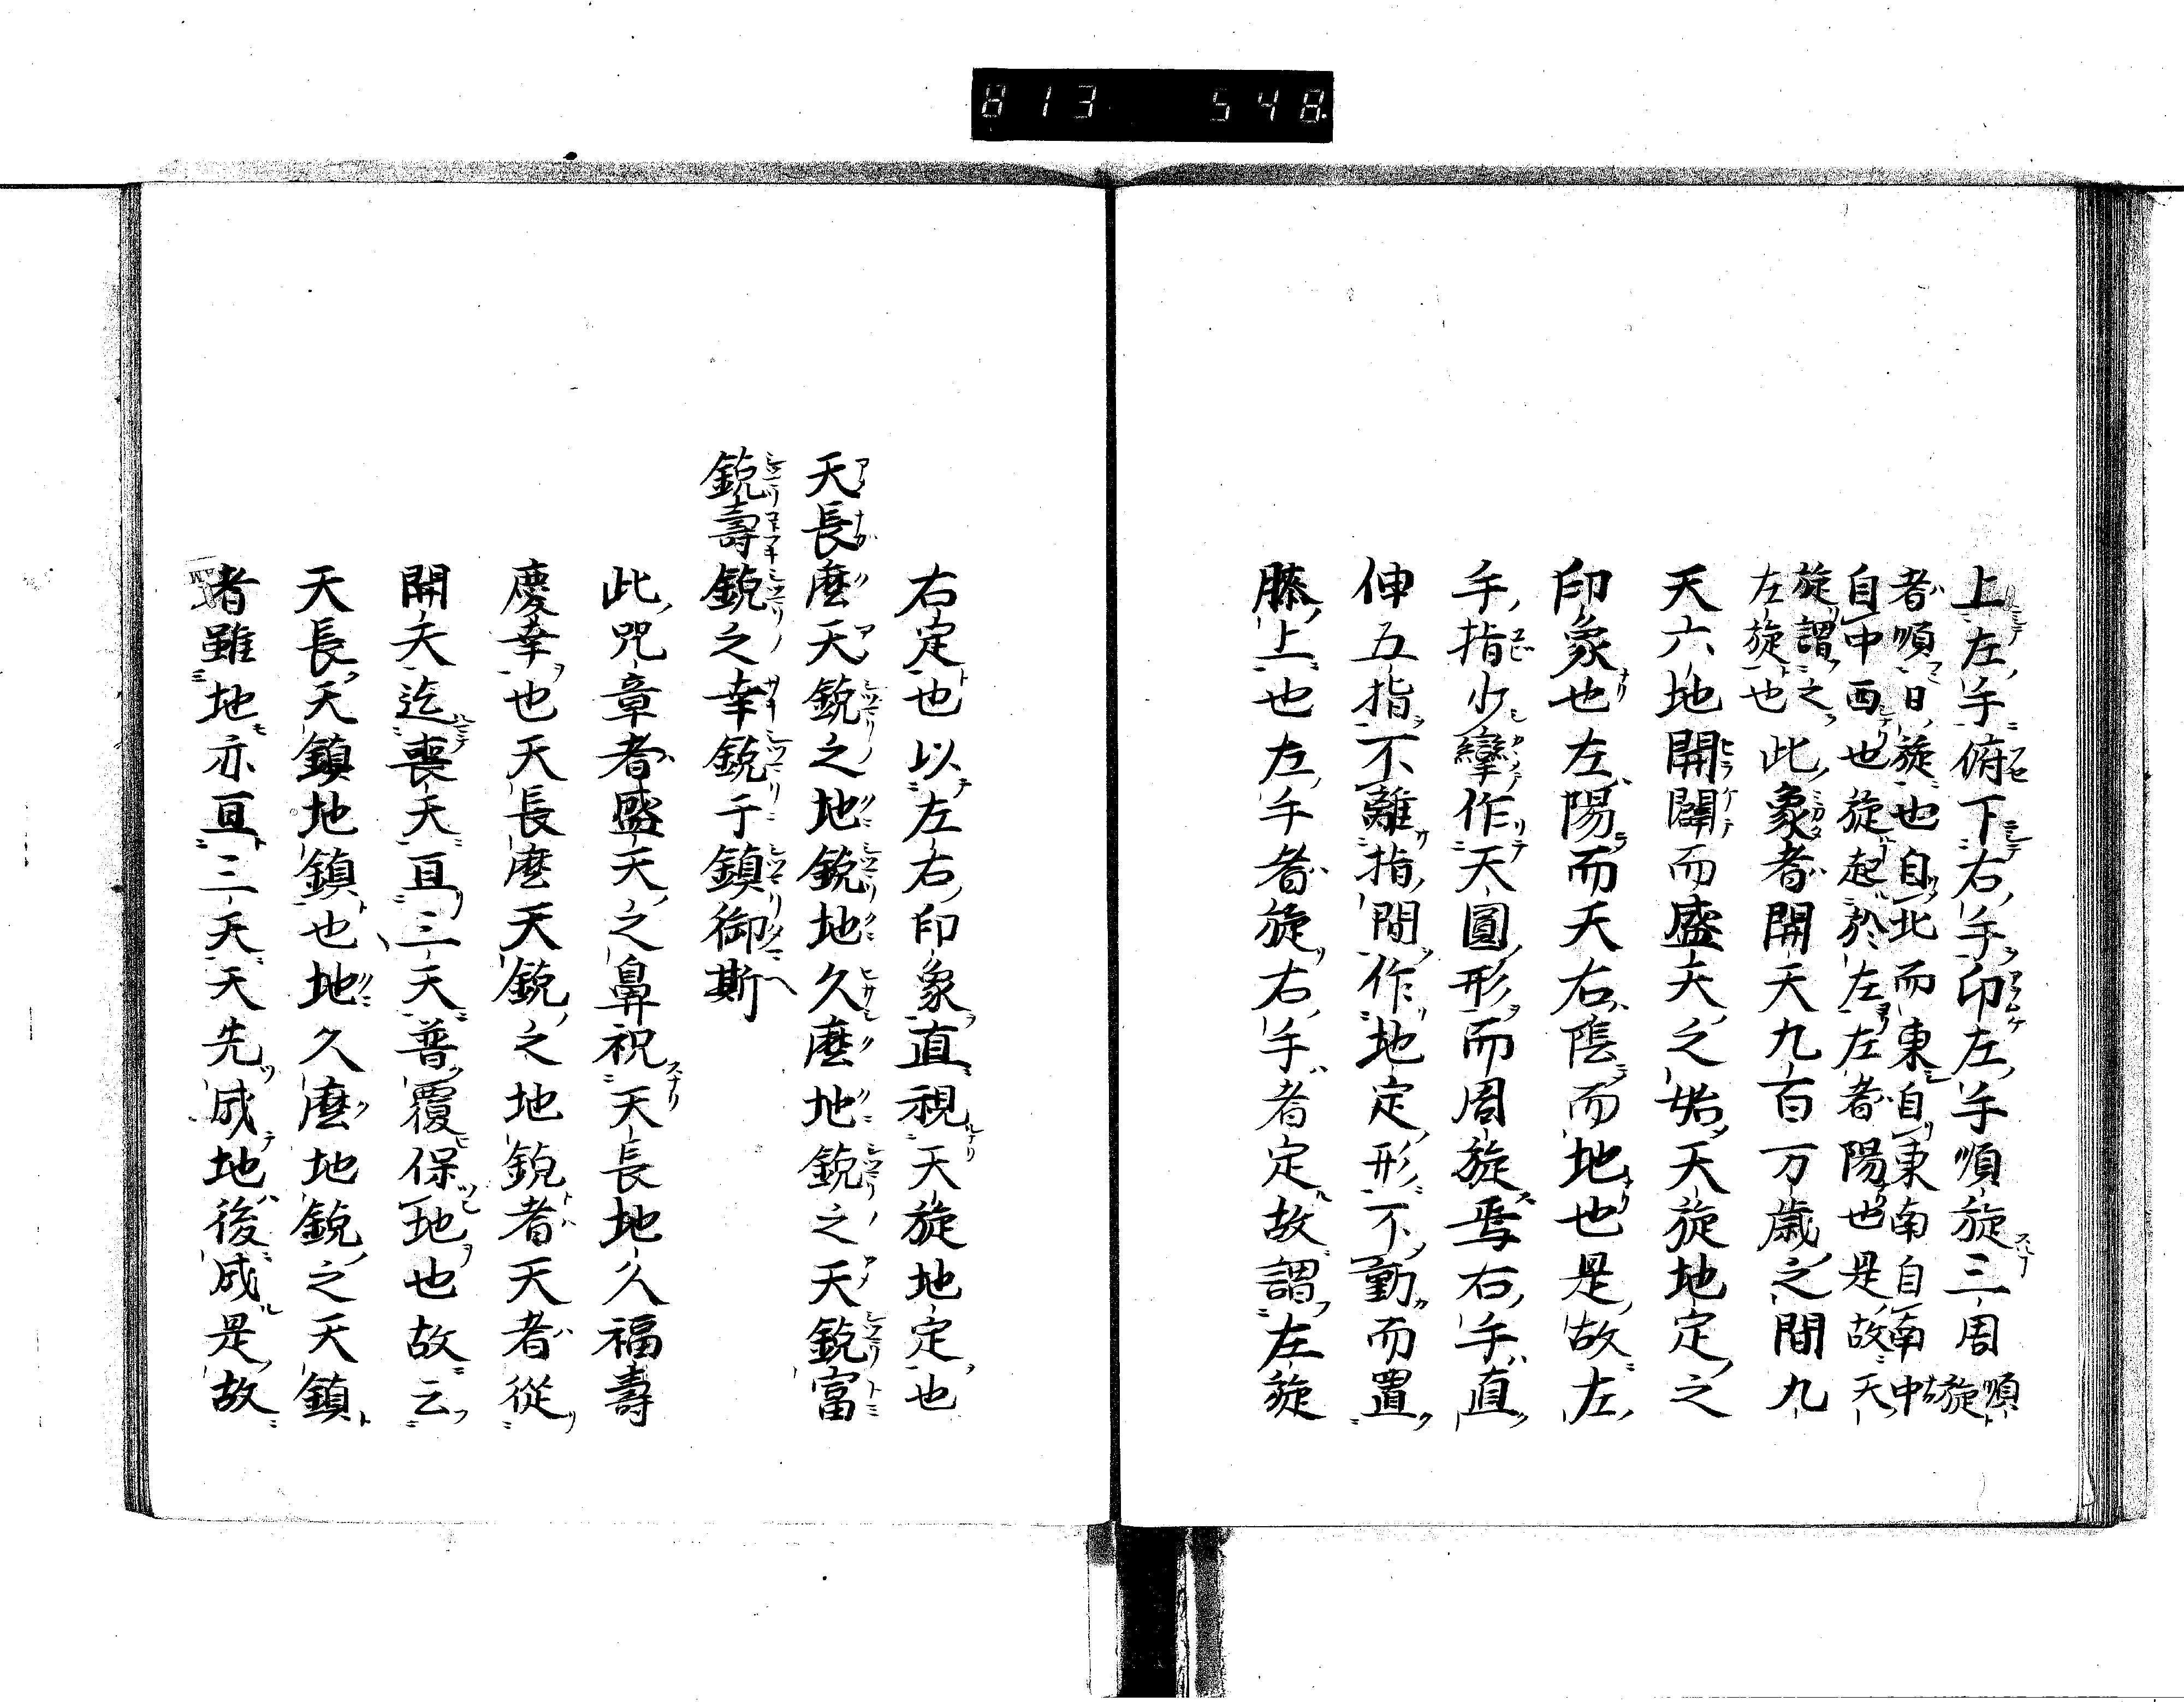 813 548
上左手俯下右手印左手順旋三周順旋
者順日旋也自北而東自東南自南中
自中西也旋起於左左者陽也是故天
旋謂之
左旋也此象者開天九百万歳之間九
天六地開闢而盛天之始天旋地定之
印象也左陽而天右陰而地也是故左
手指少攣作天圓形而周旋焉右手直
伸五指不離指間作地定形不動而置
膝上也左手者旋右手者定故謂左旋
右定也以左右印象直視天旋地定也
天長麼天鋭之地鋭地久麼地鋭之天鋭富
鋭壽鋭之幸鋭于鎮御斯
此咒章者盛天之鼻祝天長地久福壽
慶幸也天長麼天鋭之地鋭者天者從
開天迄喪天亘三天普覆保地也故云
天長天鎮地鎮也地久麼地鋭之天鎮
者雖地亦亘三天天先成地後成是故